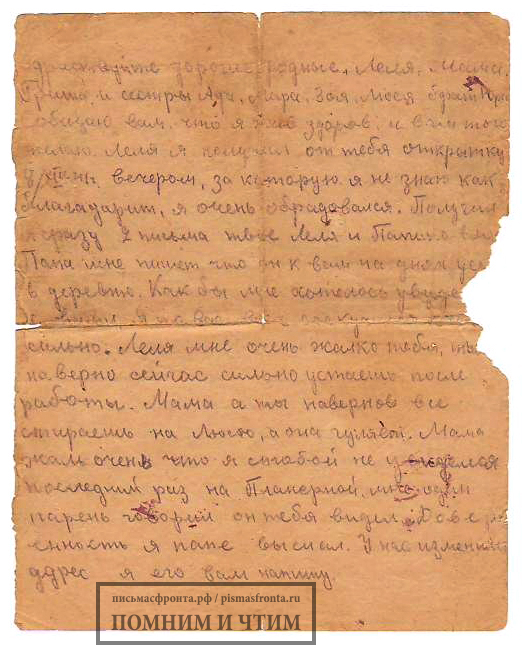 дравствуйте дорогие родные, Леля, Мама
Гриша, и сестры Ада, Мара, Зоя, Люся
общаю вам, что я жив здоров, и вам того
желаю. Леля я получил от тебя открытку
вечером, за которую я не знаю как
благадарит, я очень обрадовался. Получил
сразу 2 письма твое Леля и Папино
Папа мне пишет что он к вам на днях
в деревню. Как бы мне хотелось увиде
с вами я
сильно. Леля мне очень жалко тебя, ты
наверно сейчас сильно устаешь после
работы. Мама а ты навернов все
стираешь на Люсю, а она гуляет. Мама
жаль очень что я стобой не увиделся
последний раз на Планерной, мне один
парень говорил он тебя видел. Довер
енность я папе выслал. У нас изменит
адрес я его вам напишу.
письмасфронта.рф / pismasfronta.ru
ПОМНИМ И ЧТИМ